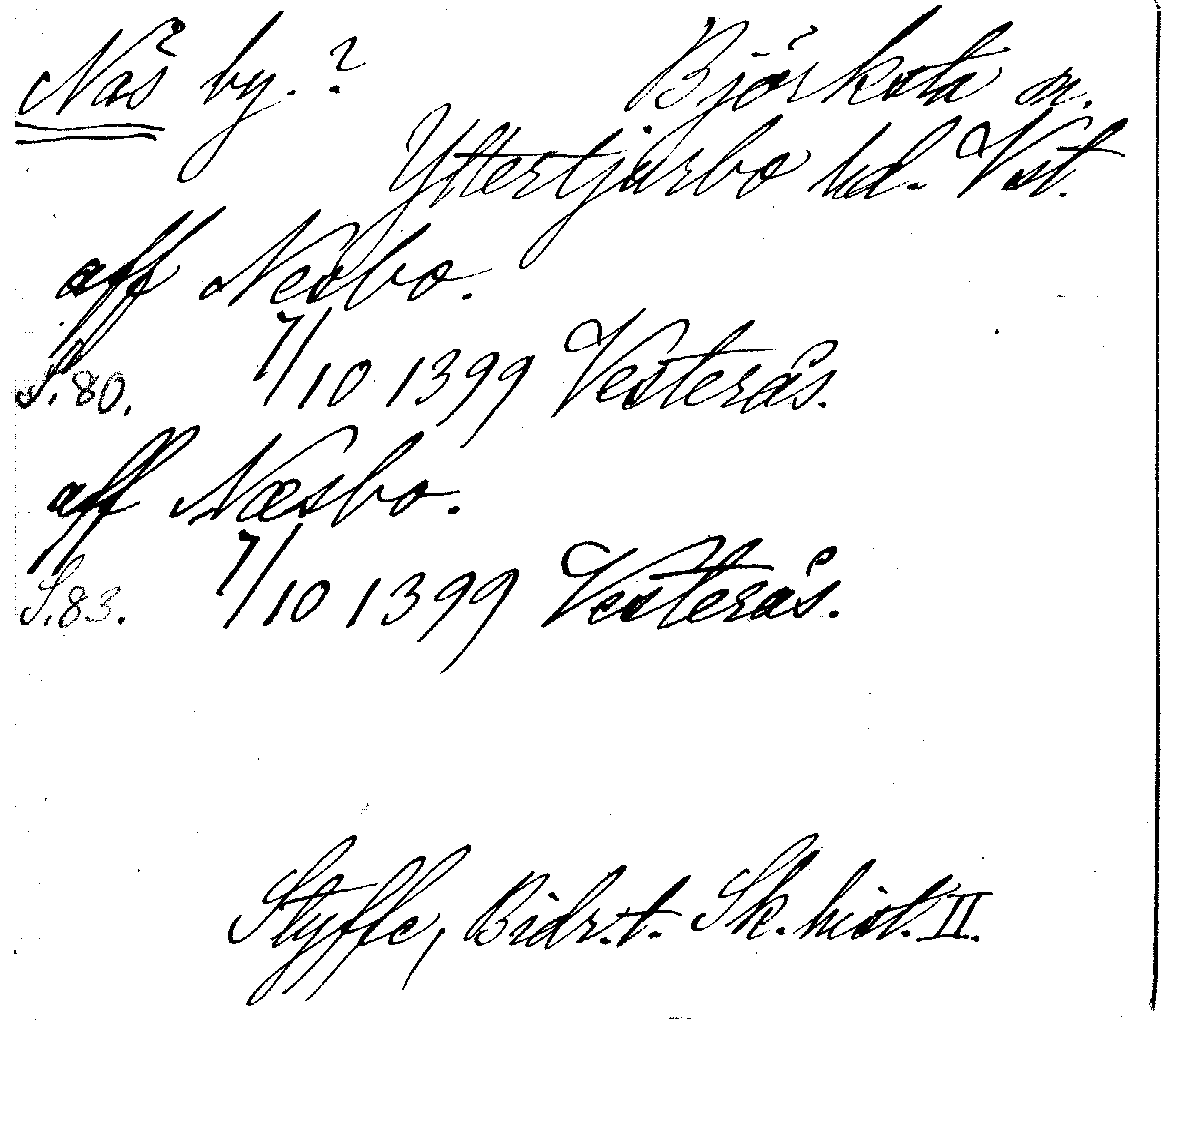 Näs by. ? Björksta sn.
Yttertjurbo hd. Vstm.
aff Nesbo.
S. 80. 7/10 1399 Vesterås.
aff Næsbo.
S. 83. 7/10 1399 Vesterås.
Styffe, Bidr. t. Sk. hist. II.